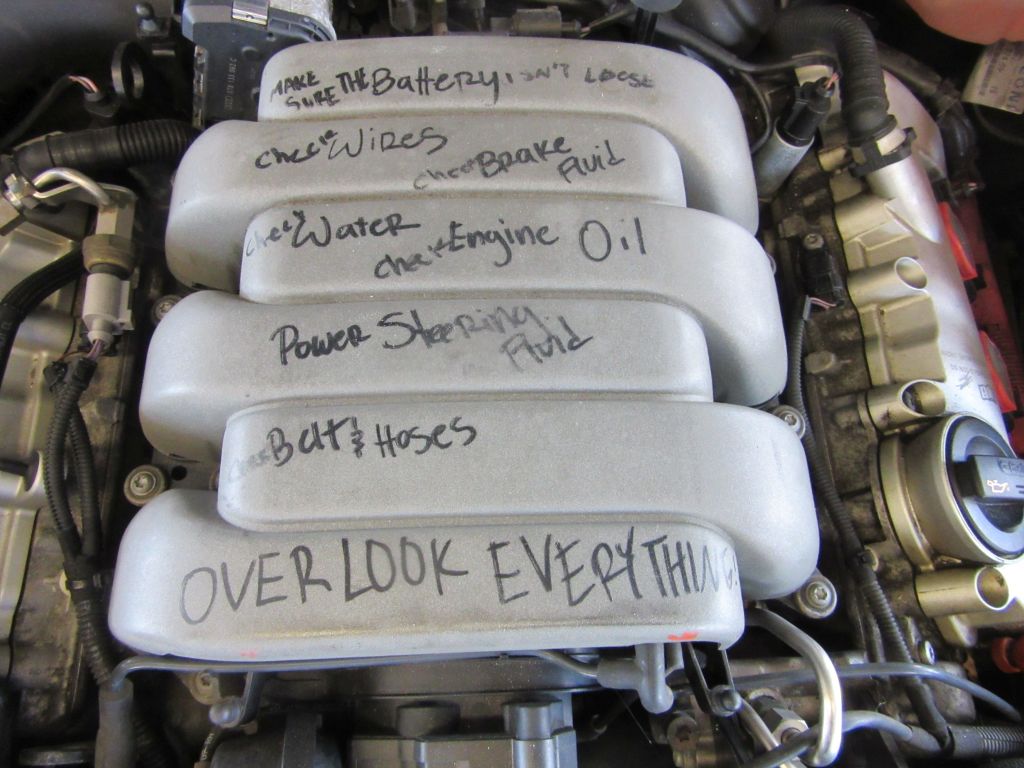 MAKE SURE THE Battery ISN'T LOOSE
check Wires
check Brake Fluid
check Water
check Engine Oil
Power Steering Fluid
check Belt & Hoses
OVERLOOK EVERYTHING!